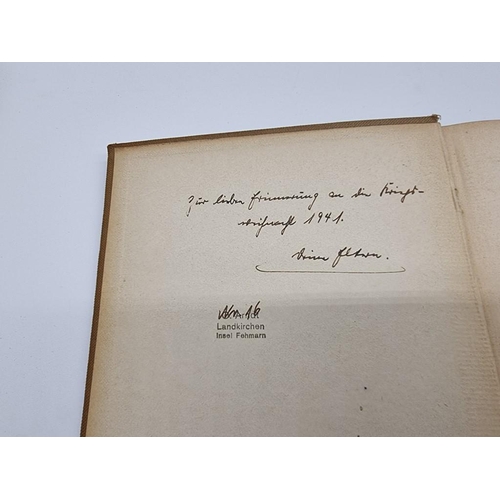 Zur lieben Erinnerung an die Kriegs-
weihnacht 1941.
Deine Eltern.
Landkirchen
Insel Fehmarn